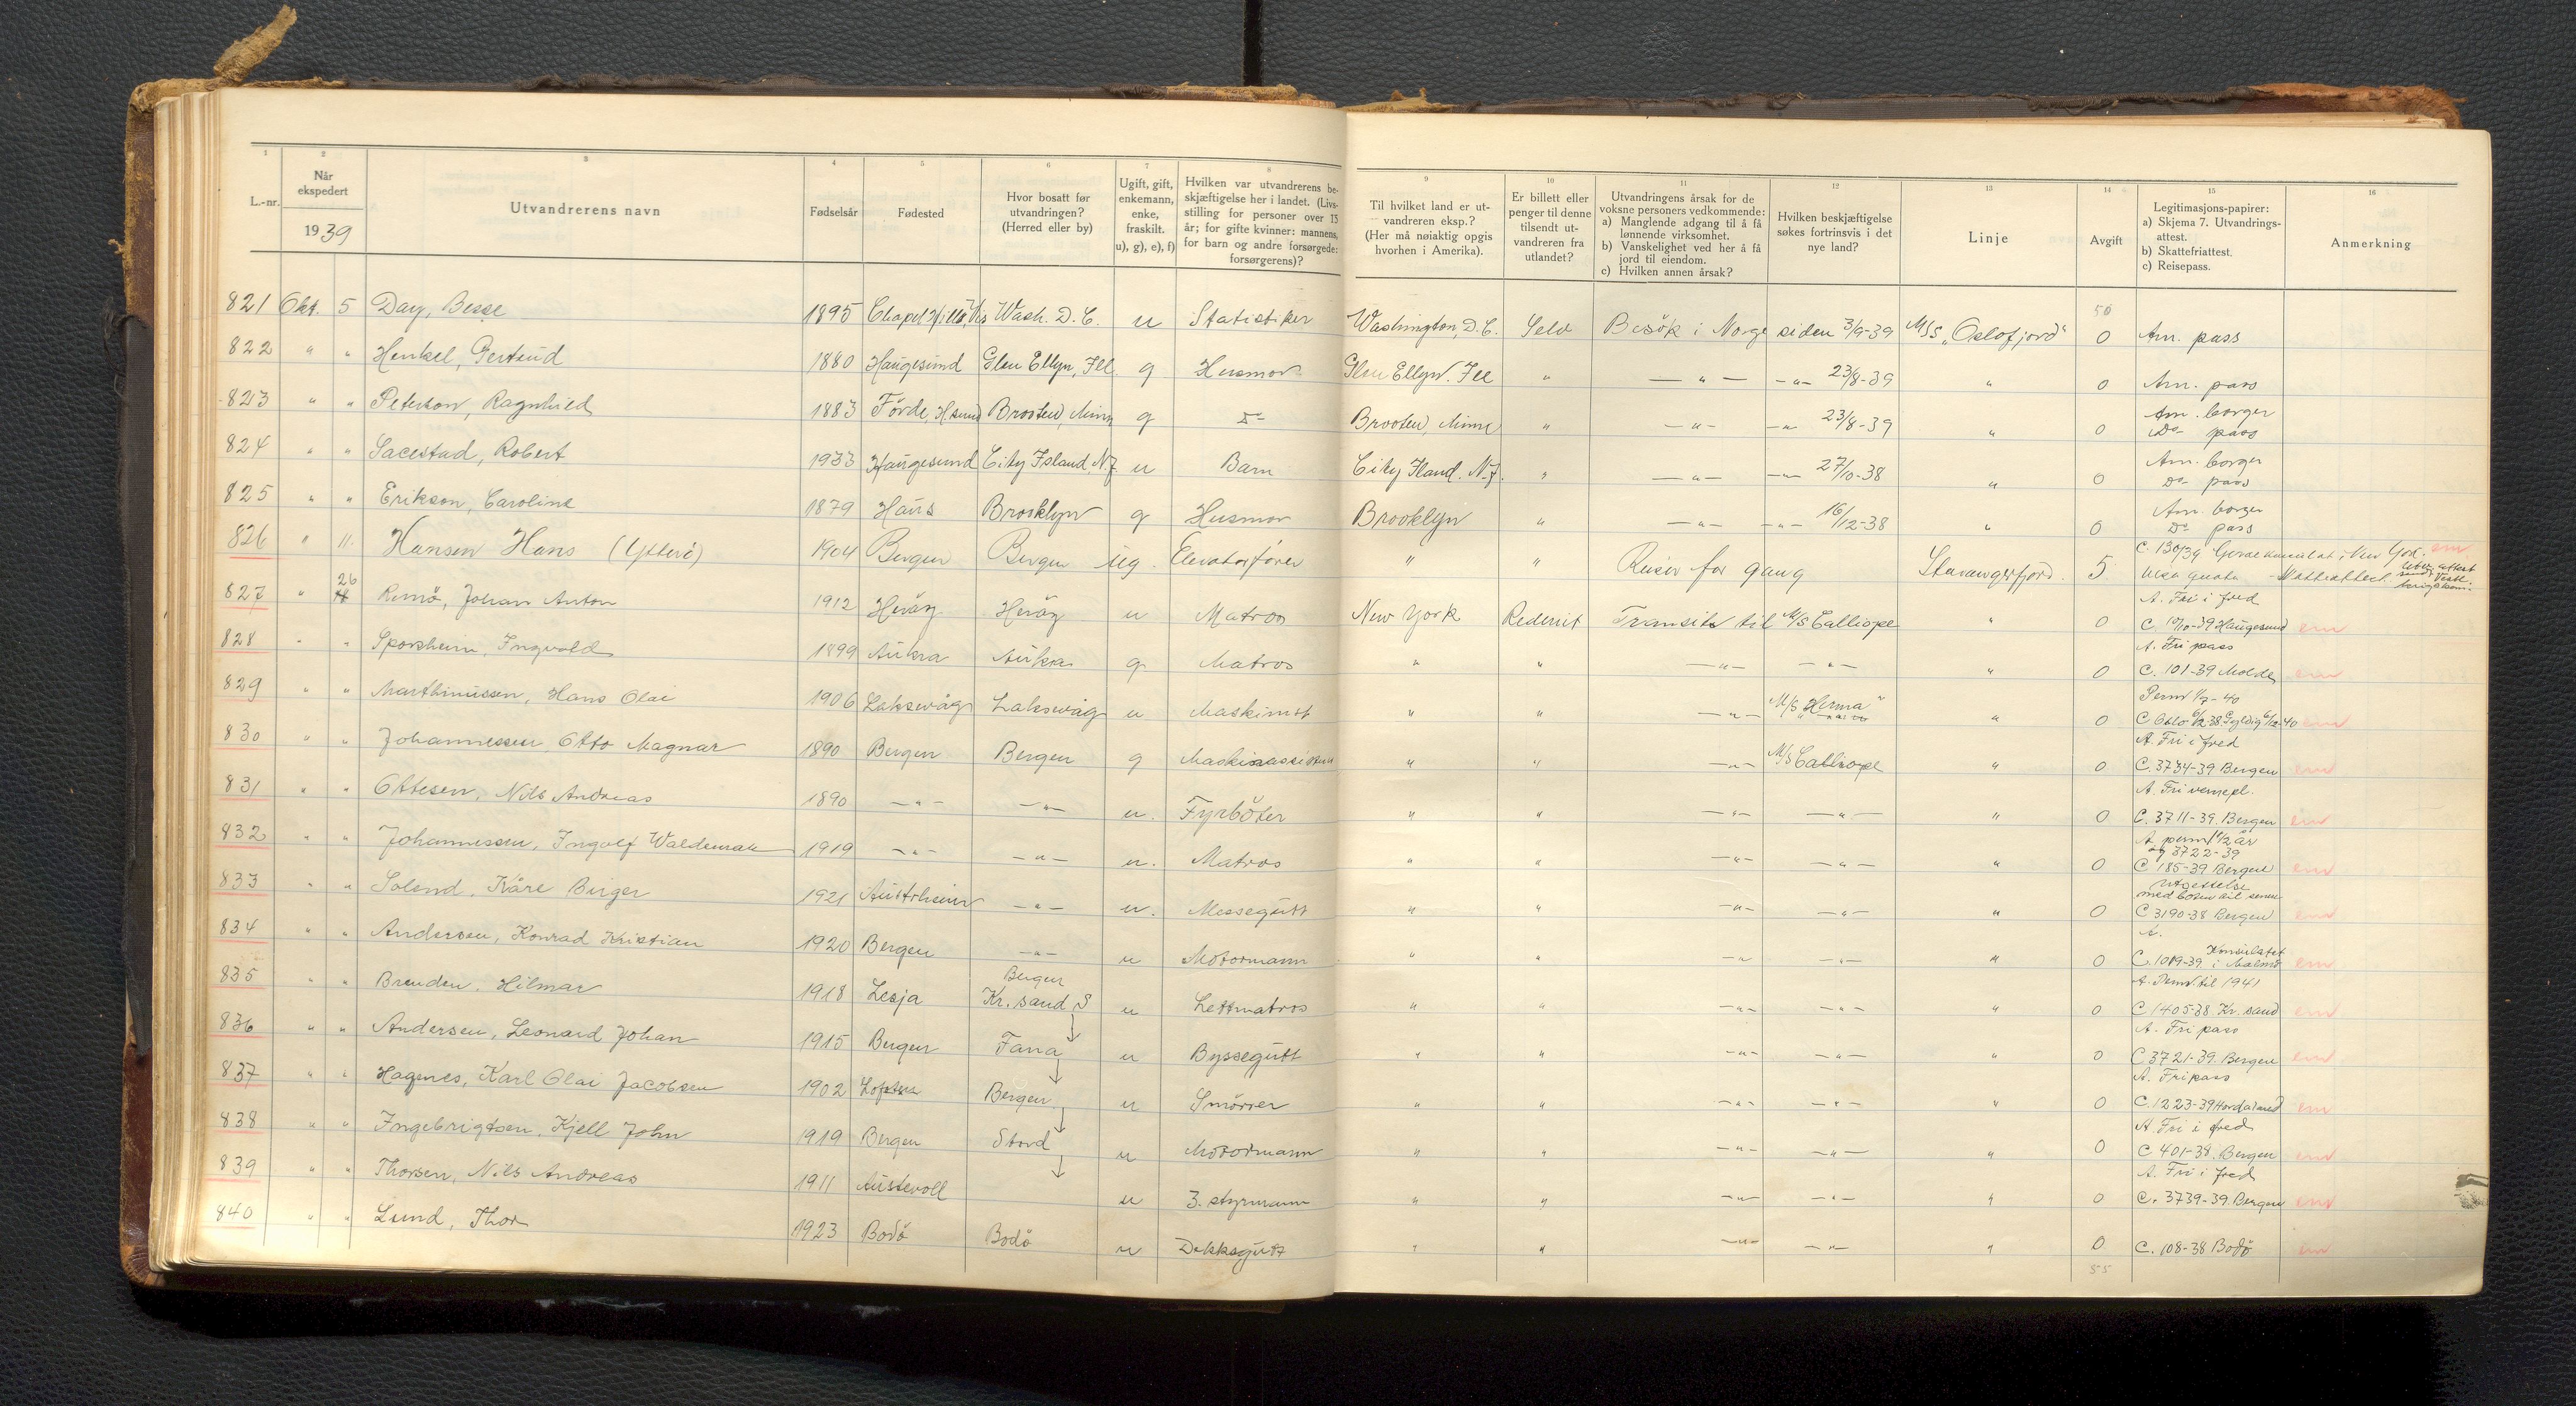 1 2 3 4 5 6 7 8 9 10 11 12 13 14 15 16
L.-nr.
Når ekspedert
1939
Utvandrerens navn
Fødselsår
Fødested
Hvor bosatt før utvandringen? (Herred eller by)
Ugift, gift, enkemann, enke, fraskilt. u), g), e), f)
Hvilken var utvandrerens beskjæftigelse her i landet. (Livsstilling for personer over 15 år; for gifte kvinner: mannens, for barn og andre forsørgede: forsørgerens)?
Til hvilket land er utvandreren eksp.? (Her må nøiaktig opgis hvorhen i Amerika).
Er billett eller penger til denne tilsendt utvandreren fra utlandet?
Utvandringens årsak for de voksne personers vedkommende:
a) Manglende adgang til å få lønnende virksomhet.
b) Vanskelighet ved her å få jord til eiendom.
c) Hvilken annen årsak?
Hvilken beskjæftigelse søkes fortrinsvis i det nye land?
Linje
Avgift
Legitimasjons-papirer:
a) Skjema 7. Utvandringsattest.
b) Skattefriattest.
c) Reisepass.
Anmerkning
50
821 Okt. 5 Day, Besse 1895 Chapel Hille, Wash. D.C. u Statistiker Washington, D.C. Selv Besök i Norge siden 3/9-39 M/S „Oslofjord“ 0 Am. pass
822 " " Henkel, Gertrud 1880 Haugesund Glen Ellyn, Ill. g Husmor Glen Ellyn. Ill " — " — -"- 23/8-39 " 0 Am. pass
823 " " Peterson, Ragnhild 1883 Förde, H.sund Brooten, Minn g Do Brooten, Minn " — " — -"- 23/8-39 " 0 Am. borger Do pass
824 " " Sacestad, Robert 1933 Haugesund City Island, N.J. u Barn City Iland. N.J. " — " — -"- 27/10-38 " 0 Am. borger Do pass
825 " " Erikson, Caroline 1879 Haus Brooklyn g Husmor Brooklyn " — " — -"- 16/12-38 " 0 Am. borger Do pass
826 " 11. Hansen Hans 1904 Bergen Bergen ug. Elevatorfører " " Reiser for gang Stavangerfjord. 5 C. 130/39 Generalkonsulat i New York. em
visa quota - Skatteattest
827 " 26 Remö, Johan Anton 1912 Heröy Heröy u Matros New York Rederiet Transit til M/S Calliope " 0 A. Fri i fred C 10/10-39 Haugesund em
828 " " Sporsheim, Ingvald 1899 Aukra Aukra g Matros " " — " — — " — " 0 A. Fri pass C. 101-39 Molde em
829 " " Marthinussen, Hans Olai 1906 Laksevåg Laksevåg u Maskinist " " — " — M/S „Herma“ " 0 Perm 1/7-40 C Oslo 6/12 38. Gyldig 6/12-40 em
830 " " Johannessen Otto Magnar 1890 Bergen Bergen g Maskinassistent " " — " — M/S Calliope " 0 A. Fri i fred C. 3734-39 Bergen em
831 " " Ottesen, Nils Andreas 1890 — " — — " — u. Fyrböter " " — " — — " — " 0 A. Fri vernepl. C. 3711-39. Bergen em
832 " " Johannessen, Ingolf Waldemar 1919 — " — — " — u. Matros " " — " — — " — " 0 A perm 1 1/2 år 3722-39 C 185-39 Bergen em
833 " " Solend, Kåre Birger 1921 Austrheim — " — u. Messegutt " " — " — — " — " 0 Utsettelse C 3190-38 Bergen em
834 " " Andersen, Konrad Kristian 1920 Bergen — " — u Motormann " " — " — — " — " 0 A. C. 1019-39 Konsulatet i Malmö em
835 " " Brenden, Hilmar 1918 Lesja Bergen Kr. sand S u Lettmatros " " — " — — " — " 0 A. Perm. til 1941 C 1405-38 Kr. sand em
836 " " Andersen, Leonard Johan 1915 Bergen Fana u Byssegutt " " — " — — " — " 0 A. Fri pass C 3721-39. Bergen em
837 " " Hagenes, Karl Olai Jacobsen 1902 Bergen u Smörer " " — " — — " — " 0 A. Fripass C. 1223-39 Hordaland em
838 " " Ingebrigtsen, Kjell John 1919 Bergen Stord u Motormann " " — " — — " — " 0 A. Fri i fred C 401-38. Bergen em
839 " " Thorsen, Nils Andreas 1911 Austevoll u 3. styrmann " " — " — — " — " 0 A. Fri i fred C. 3739-39. Bergen em
840 " " Lund, Thor 1923 Bodö Bodö u Dekksgutt " " — " — — " — " 0 C. 108-38 Bodö em
55